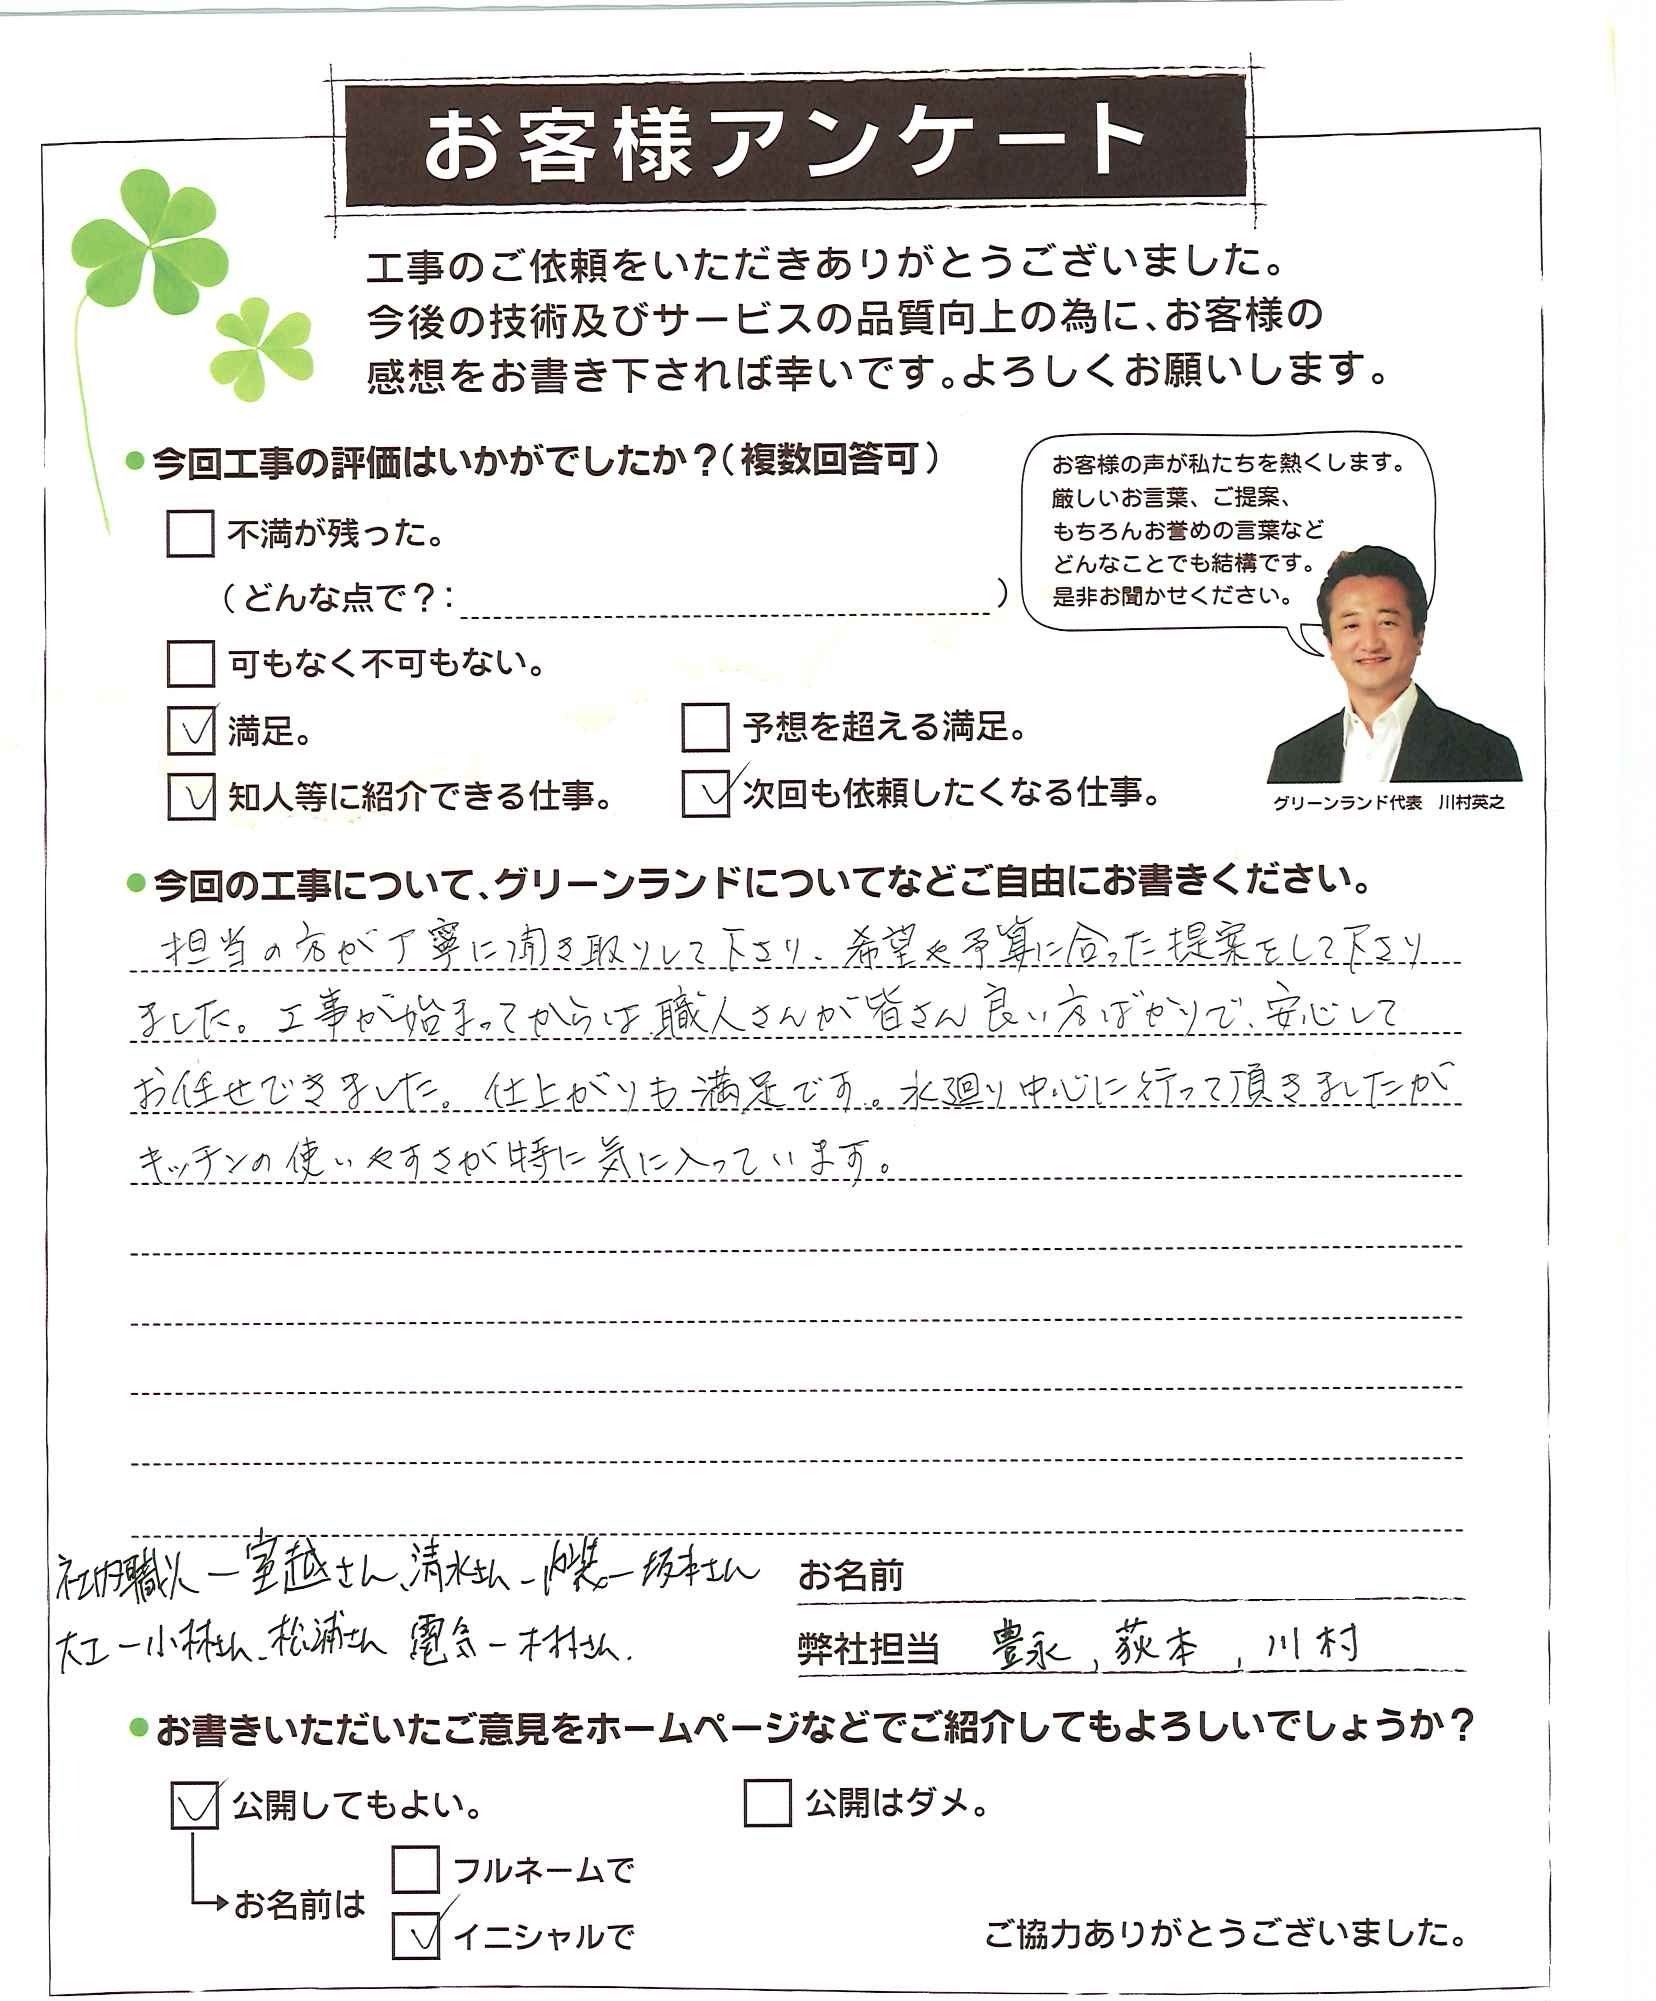 お客様アンケート
工事のご依頼をいただきありがとうございました。
今後の技術及びサービスの品質向上の為に、お客様の
感想をお書き下されば幸いです。よろしくお願いします。
●今回工事の評価はいかがでしたか？（複数回答可）
不満が残った。
（どんな点で？：　）
可もなく不可もない。
満足。
予想を超える満足。
知人等に紹介できる仕事。
次回も依頼したくなる仕事。
お客様の声が私たちを熱くします。
厳しいお言葉、ご提案、
もちろんお誉めの言葉など
どんなことでも結構です。
是非お聞かせください。
グリーンランド代表　川村英之
●今回の工事について、グリーンランドについてなどご自由にお書きください。
担当の方が丁寧に聞き取りして下さり、希望や予算に合った提案をして下さり
ました。工事が始まってからは職人さんが皆さん良い方ばかりで、安心して
お任せできました。仕上がりも満足です。水廻り中心に行って頂きましたが
キッチンの使いやすさが特に気に入っています。
社内職人ー室越さん、清水さんー内装ー坂本さん
大工ー小林さん、松浦さん 電気ー木村さん.
お名前
弊社担当　豊永，荻本，川村
●お書きいただいたご意見をホームページなどでご紹介してもよろしいでしょうか？
公開してもよい。
公開はダメ。
お名前は
フルネームで
イニシャルで
ご協力ありがとうございました。